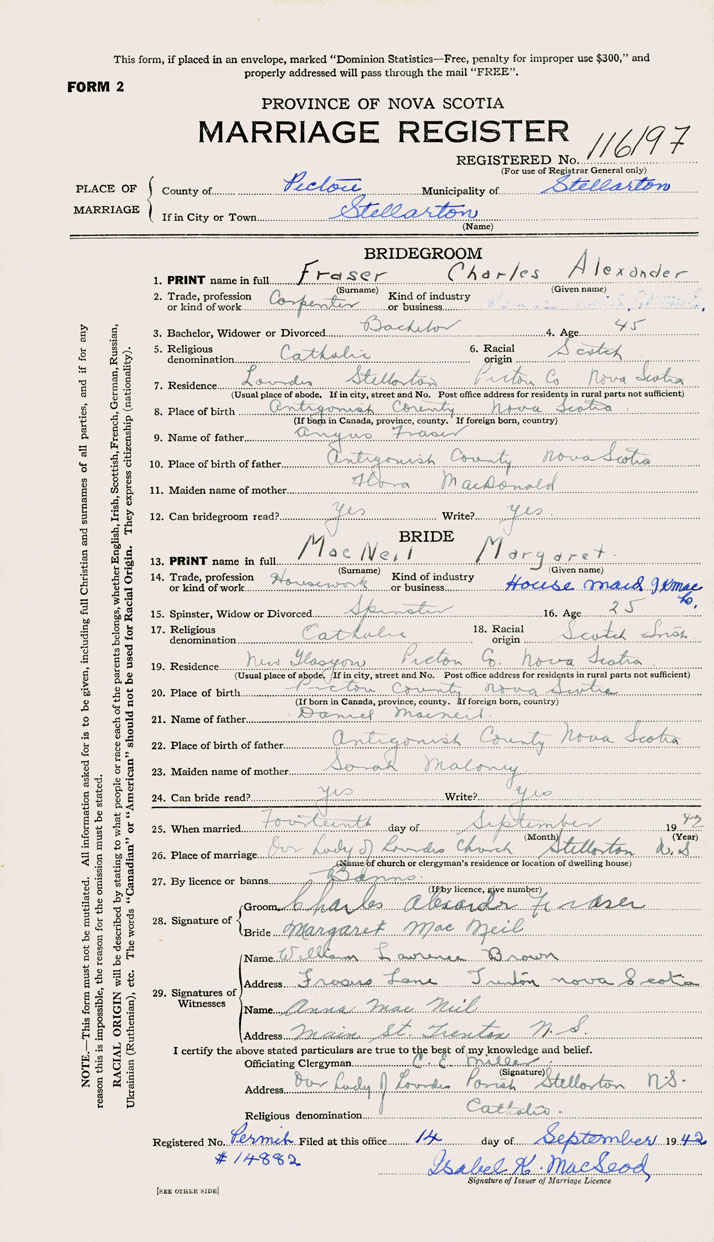 This form, if placed in an envelope, marked "Dominion Statistics—Free, penalty for improper use $300," and
properly addressed will pass through the mail "FREE".
FORM 2
PROVINCE OF NOVA SCOTIA
MARRIAGE REGISTER
REGISTERED No. 116197
(For use of Registrar General only)
PLACE OF MARRIAGE
County of Pictou Municipality of Stellarton
If in City or Town Stellarton
(Name)
BRIDEGROOM
1. PRINT name in full Fraser Charles Alexander
(Surname) (Given name)
2. Trade, profession or kind of work Carpenter Kind of industry or business
3. Bachelor, Widower or Divorced Bachelor 4. Age 45
5. Religious denomination Catholic 6. Racial origin Scotch
7. Residence Lourdes Stellarton Pictou Co Nova Scotia
(Usual place of abode. If in city, street and No. Post office address for residents in rural parts not sufficient)
8. Place of birth Antigonish County Nova Scotia
(If born in Canada, province, county. If foreign born, country)
9. Name of father Angus Fraser
10. Place of birth of father Antigonish County Nova Scotia
11. Maiden name of mother Flora MacDonald
12. Can bridegroom read? Yes Write? Yes.
BRIDE
13. PRINT name in full MacNeil Margaret.
(Surname) (Given name)
14. Trade, profession or kind of work Housework Kind of industry or business House maid J K Mac Co.
15. Spinster, Widow or Divorced Spinster 16. Age 25
17. Religious denomination Catholic 18. Racial origin Scotch Irish
19. Residence New Glasgow Pictou Co. Nova Scotia
(Usual place of abode. If in city, street and No. Post office address for residents in rural parts not sufficient)
20. Place of birth Pictou County Nova Scotia
(If born in Canada, province, county. If foreign born, country)
21. Name of father Daniel Macneil.
22. Place of birth of father Antigonish County Nova Scotia
23. Maiden name of mother Sarah Maloney
24. Can bride read? Yes Write? Yes
25. When married Fourteenth day of September 1942
(Month) (Year)
26. Place of marriage Our Lady of Lourdes Church Stellarton N.S.
(Name of church or clergyman's residence or location of dwelling house)
27. By licence or banns Banns.
(If by licence, give number)
28. Signature of
Groom Charles Alexander Fraser
Bride Margaret Mac Neil
29. Signatures of Witnesses
Name William Lawrence Brown
Address Frasers Lane Trenton nova Scotia
Name Anna Mac Neil
Address Main St. Trenton N.S.
I certify the above stated particulars are true to the best of my knowledge and belief.
Officiating Clergyman C. E. Miller
(Signature)
Address Our Lady of Lourdes Parish Stellarton N.S.
Religious denomination Catholic.
Registered No. Permit Filed at this office 14 day of September 1942
#14882
Isabel K. MacLeod,
Signature of Issuer of Marriage Licence
[SEE OTHER SIDE]
NOTE.—This form must not be mutilated. All information asked for is to be given, including full Christian and surnames of all parties, and if for any
reason this is impossible, the reason for the omission must be stated.
RACIAL ORIGIN will be described by stating to what people or race each of the parents belongs, whether English, Irish, Scottish, French, German, Russian,
Ukrainian (Ruthenian), etc. The words "Canadian" or "American" should not be used for Racial Origin. They express citizenship (nationality).